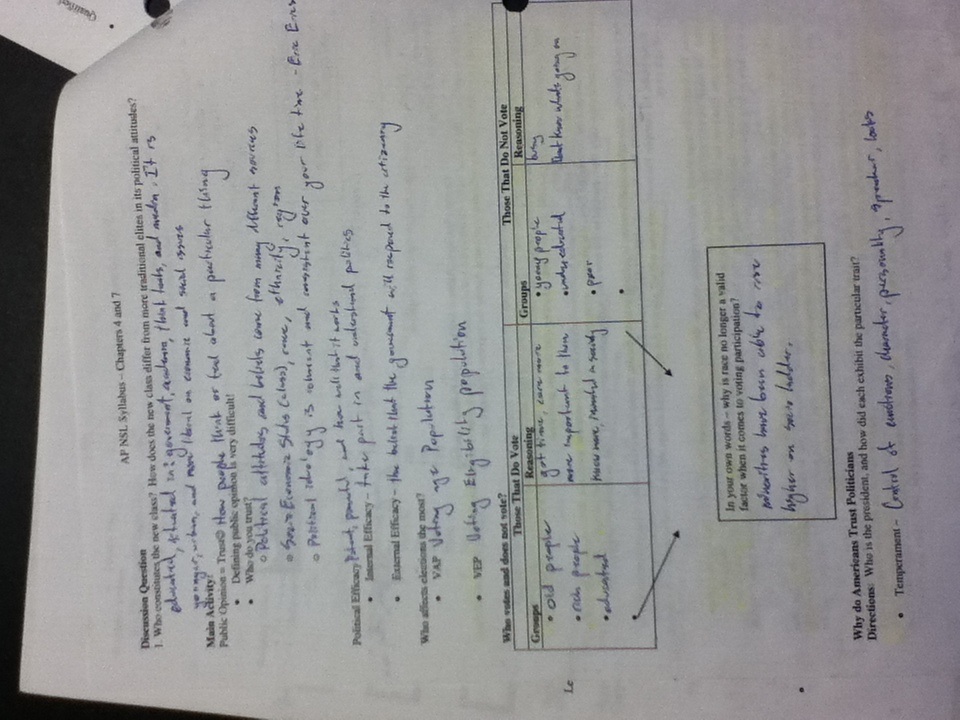 Qualified
AP NSL Syllabus – Chapters 4 and 7
Discussion Question
1. Who constitutes the new class? How does the new class differ from more traditional elites in its political attitudes?
educated, situated in: government, academia, think tanks, and media. It is
younger, urban, and more liberal on economic and social issues
Main Activity:
Public Opinion = Trust☺ How people think or feel about a particular thing
• Defining public opinion is very difficult!
• Who do you trust?
o Political attitudes and beliefs come from many different sources
o Socio Economic Status (class), race, ethnicity, region
o Political ideology is coherent and consistent over your life time - Eric
Political Efficacy Potent, powerful, and how well that it works
• Internal Efficacy – take part in and understand politics
• External Efficacy – the belief that the government will respond to the citizenry
Who affects elections the most?
• VAP Voting age Population
• VEP Voting Eligibility population
Who votes and does not vote?
Those That Do Vote Those That Do Not Vote
Groups Reasoning Groups Reasoning
• old people got time, care more • young people busy
Le • rich people more important to them • undereducated Dont know whats going on
• educated know more, invested in society • poor
• •
In your own words – why is race no longer a valid
factor when it comes to voting participation?
minorities have been able to rise
higher on socio ladder.
Why do Americans Trust Politicians
Directions: Who is the president, and how did each exhibit the particular trait?
• Temperament – Control of emotions, character, personality, speaker, looks